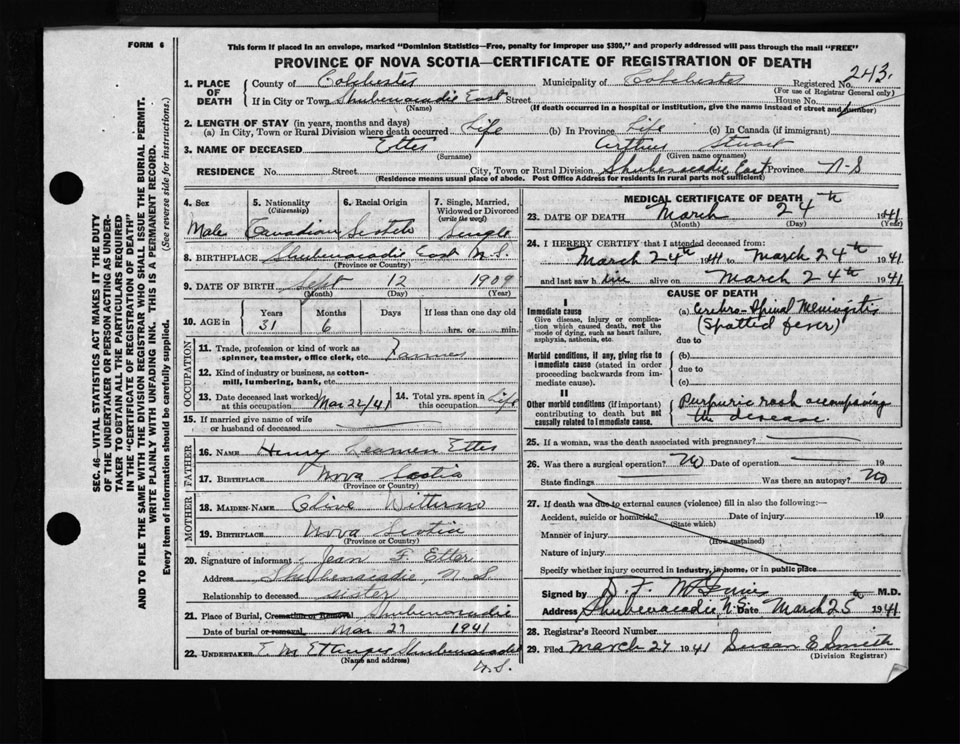 FORM 6
This form if placed in an envelope, marked "Dominion Statistics—Free, penalty for improper use $300," and properly addressed will pass through the mail "FREE"
PROVINCE OF NOVA SCOTIA—CERTIFICATE OF REGISTRATION OF DEATH
SEC. 46—VITAL STATISTICS ACT MAKES IT THE DUTY
OF THE UNDERTAKER OR PERSON ACTING AS UNDER-
TAKER TO OBTAIN ALL THE PARTICULARS REQUIRED
IN THE "CERTIFICATE OF REGISTRATION OF DEATH"
AND TO FILE THE SAME WITH THE DIVISION REGISTRAR WHO SHALL ISSUE THE BURIAL PERMIT.
WRITE PLAINLY WITH UNFADING INK. THIS IS A PERMANENT RECORD.
Every item of information should be carefully supplied. (See reverse side for instructions.)
1. PLACE OF DEATH County of Colchester Municipality of Colchester Registered No. 243
(For use of Registrar General only)
If in City or Town Shubenacadie East Street House No.
(Name) (If death occurred in a hospital or institution, give the name instead of street and number)
2. LENGTH OF STAY (in years, months and days)
(a) In City, Town or Rural Division where death occurred Life (b) In Province Life (c) In Canada (if immigrant)
3. NAME OF DECEASED Etter Arthur Stuart
(Surname) (Given name or names)
RESIDENCE No. Street City, Town or Rural Division Shubenacadie East Province N-S
(Residence means usual place of abode. Post Office Address for residents in rural parts not sufficient)
4. Sex Male
5. Nationality (Citizenship) Canadian
6. Racial Origin Scotch
7. Single, Married, Widowed or Divorced (write the word) Single
8. BIRTHPLACE Shubenacadie East N.S.
(Province or County)
9. DATE OF BIRTH Sept 12 1909
(Month) (Day) (Year)
10. AGE in Years 31 Months 6 Days If less than one day old
hrs. or min.
OCCUPATION
11. Trade, profession or kind of work as spinner, teamster, office clerk, etc. Farmer
12. Kind of industry or business, as cotton-mill, lumbering, bank, etc.
13. Date deceased last worked at this occupation Mar 22/41
14. Total yrs. spent in this occupation Life
15. If married give name of wife or husband of deceased
FATHER
16. NAME Henry Etter
17. BIRTHPLACE Nova Scotia
(Province or Country)
MOTHER
18. MAIDEN-NAME Olive
19. BIRTHPLACE Nova Scotia
(Province or Country)
20. Signature of informant Jean F Etter
Address Shubenacadie, N.S.
Relationship to deceased sister
21. Place of Burial, Cremation or Removal Shubenacadie
Date of burial or removal Mar 27 1941
22. UNDERTAKER E. M Ettinger Shubenacadie
(Name and address) N.S.
MEDICAL CERTIFICATE OF DEATH
23. DATE OF DEATH March 24th 1941
(Month) (Day) (Year)
24. I HEREBY CERTIFY that I attended deceased from:
March 24th 1941 to March 24th 1941
and last saw him alive on March 24th 1941
CAUSE OF DEATH
I
Immediate cause
Give disease, injury or complication which caused death, not the mode of dying, such as heart failure, asphyxia, asthenia, etc.
(a) Cerebro-Spinal Meningitis
(Spotted fever)
due to
Morbid conditions, if any, giving rise to immediate cause (stated in order proceeding backwards from immediate cause).
(b)
due to
(c)
II
Other morbid conditions (if important) contributing to death but not causally related to immediate cause.
Purpuric rash accompanying
the disease
25. If a woman, was the death associated with pregnancy?
26. Was there a surgical operation? No Date of operation 19
State findings Was there an autopsy? No
27. If death was due to external causes (violence) fill in also the following:—
Accident, suicide or homicide? Date of injury 19
(State which)
Manner of injury
(How sustained)
Nature of injury
Specify whether injury occurred in industry, in home, or in public place
Signed by D. F. M.D.
Address Shubenacadie, N.S. Date March 25th 1941
28. Registrar's Record Number
29. Filed March 27 1941 Susan E Smith
(Division Registrar)